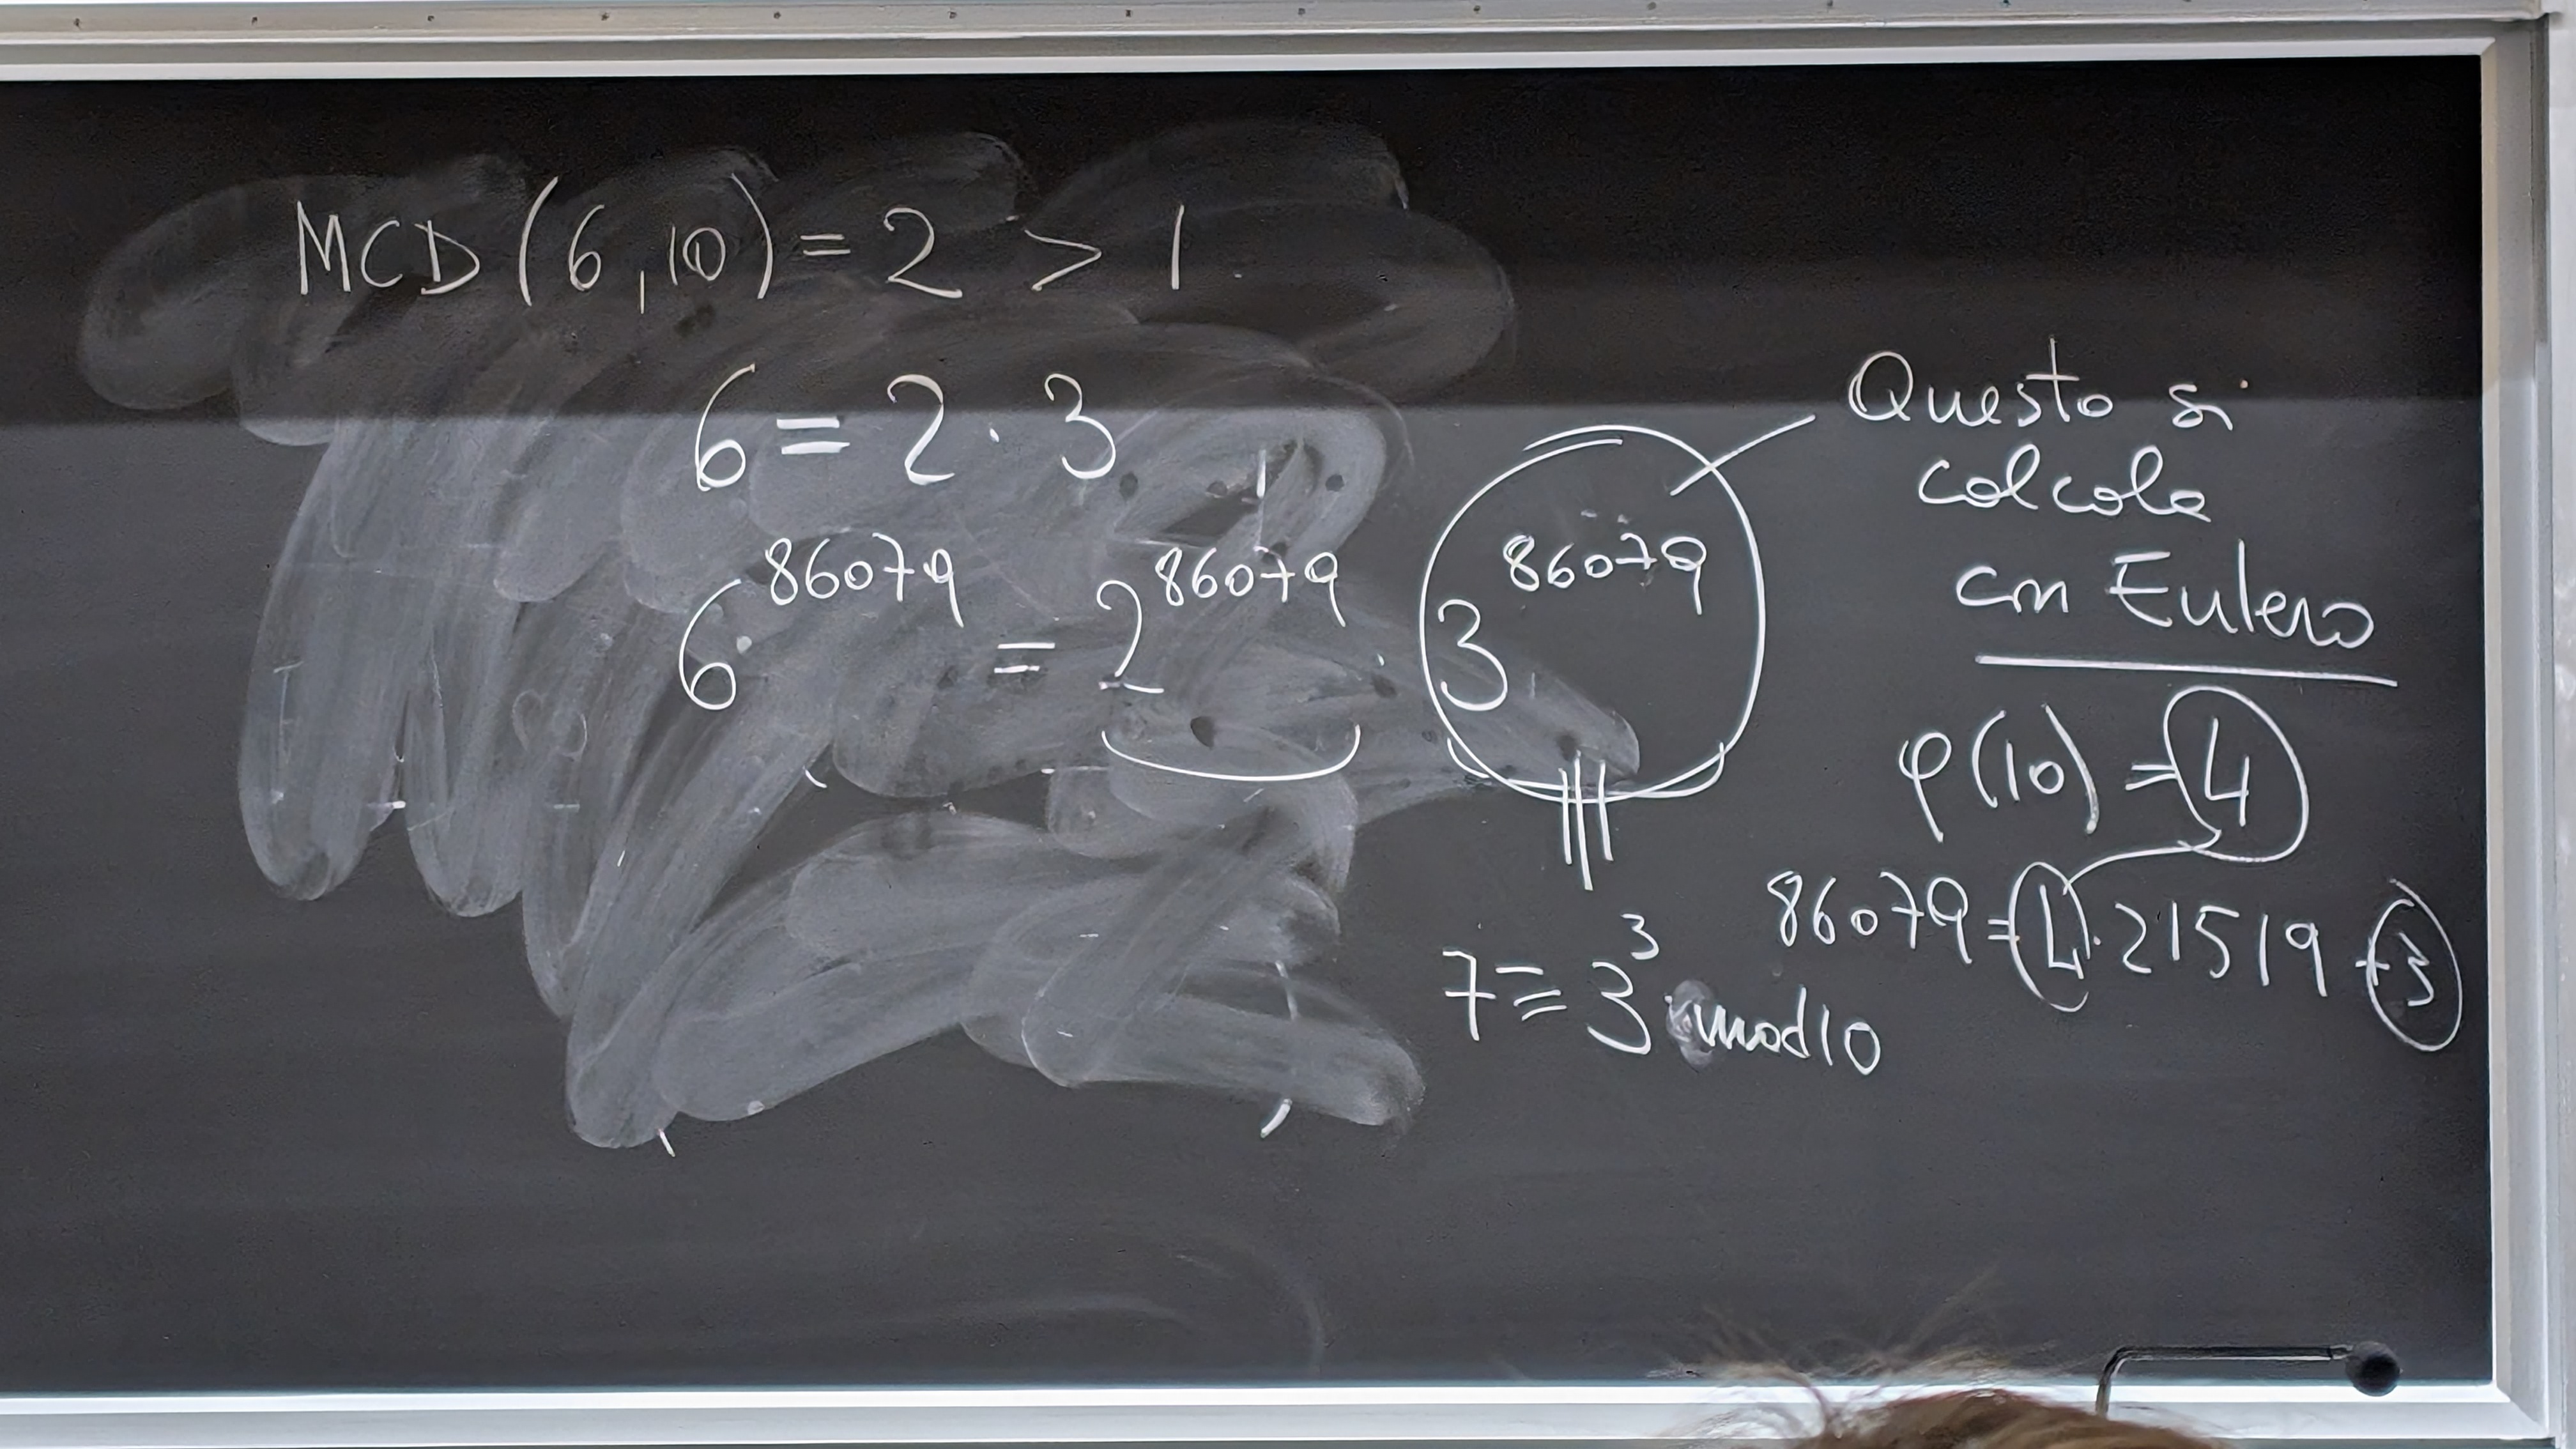 MCD(6,10) = 2 > 1.
6 = 2 · 3
6^86079 = 2^86079 · 3^86079
Questo si
calcola
con Eulero
φ(10) = 4
86079 = 4 · 21519 + 3
7 ≡ 3^3 mod 10